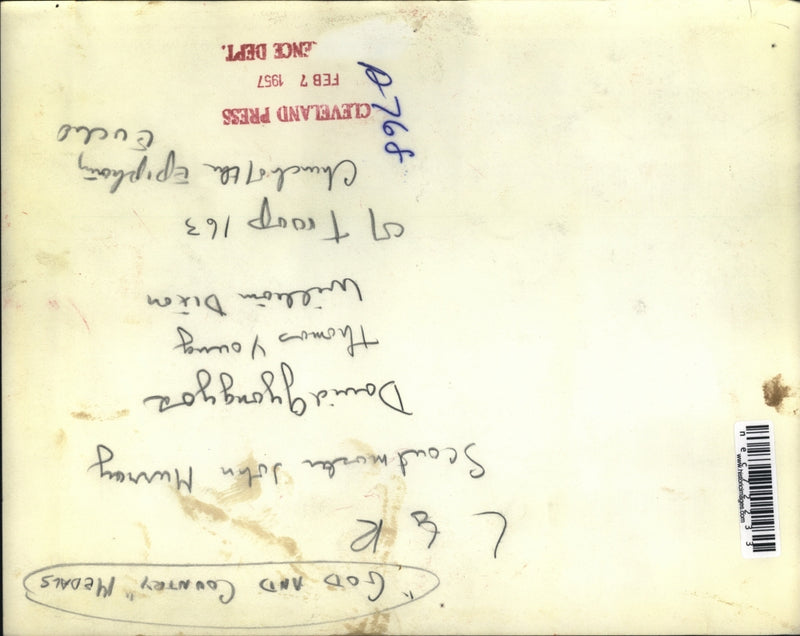 "GOD AND COUNTRY" MEDALS
L to R
Scoutmaster John Murray
David Gyongyos
Thomas Young
William Dixon
of Troop 163
Church of the Epiphany
Euclid
CLEVELAND PRESS
FEB 7 1957
ENCE DEPT.
A-768
www.historicimages.com